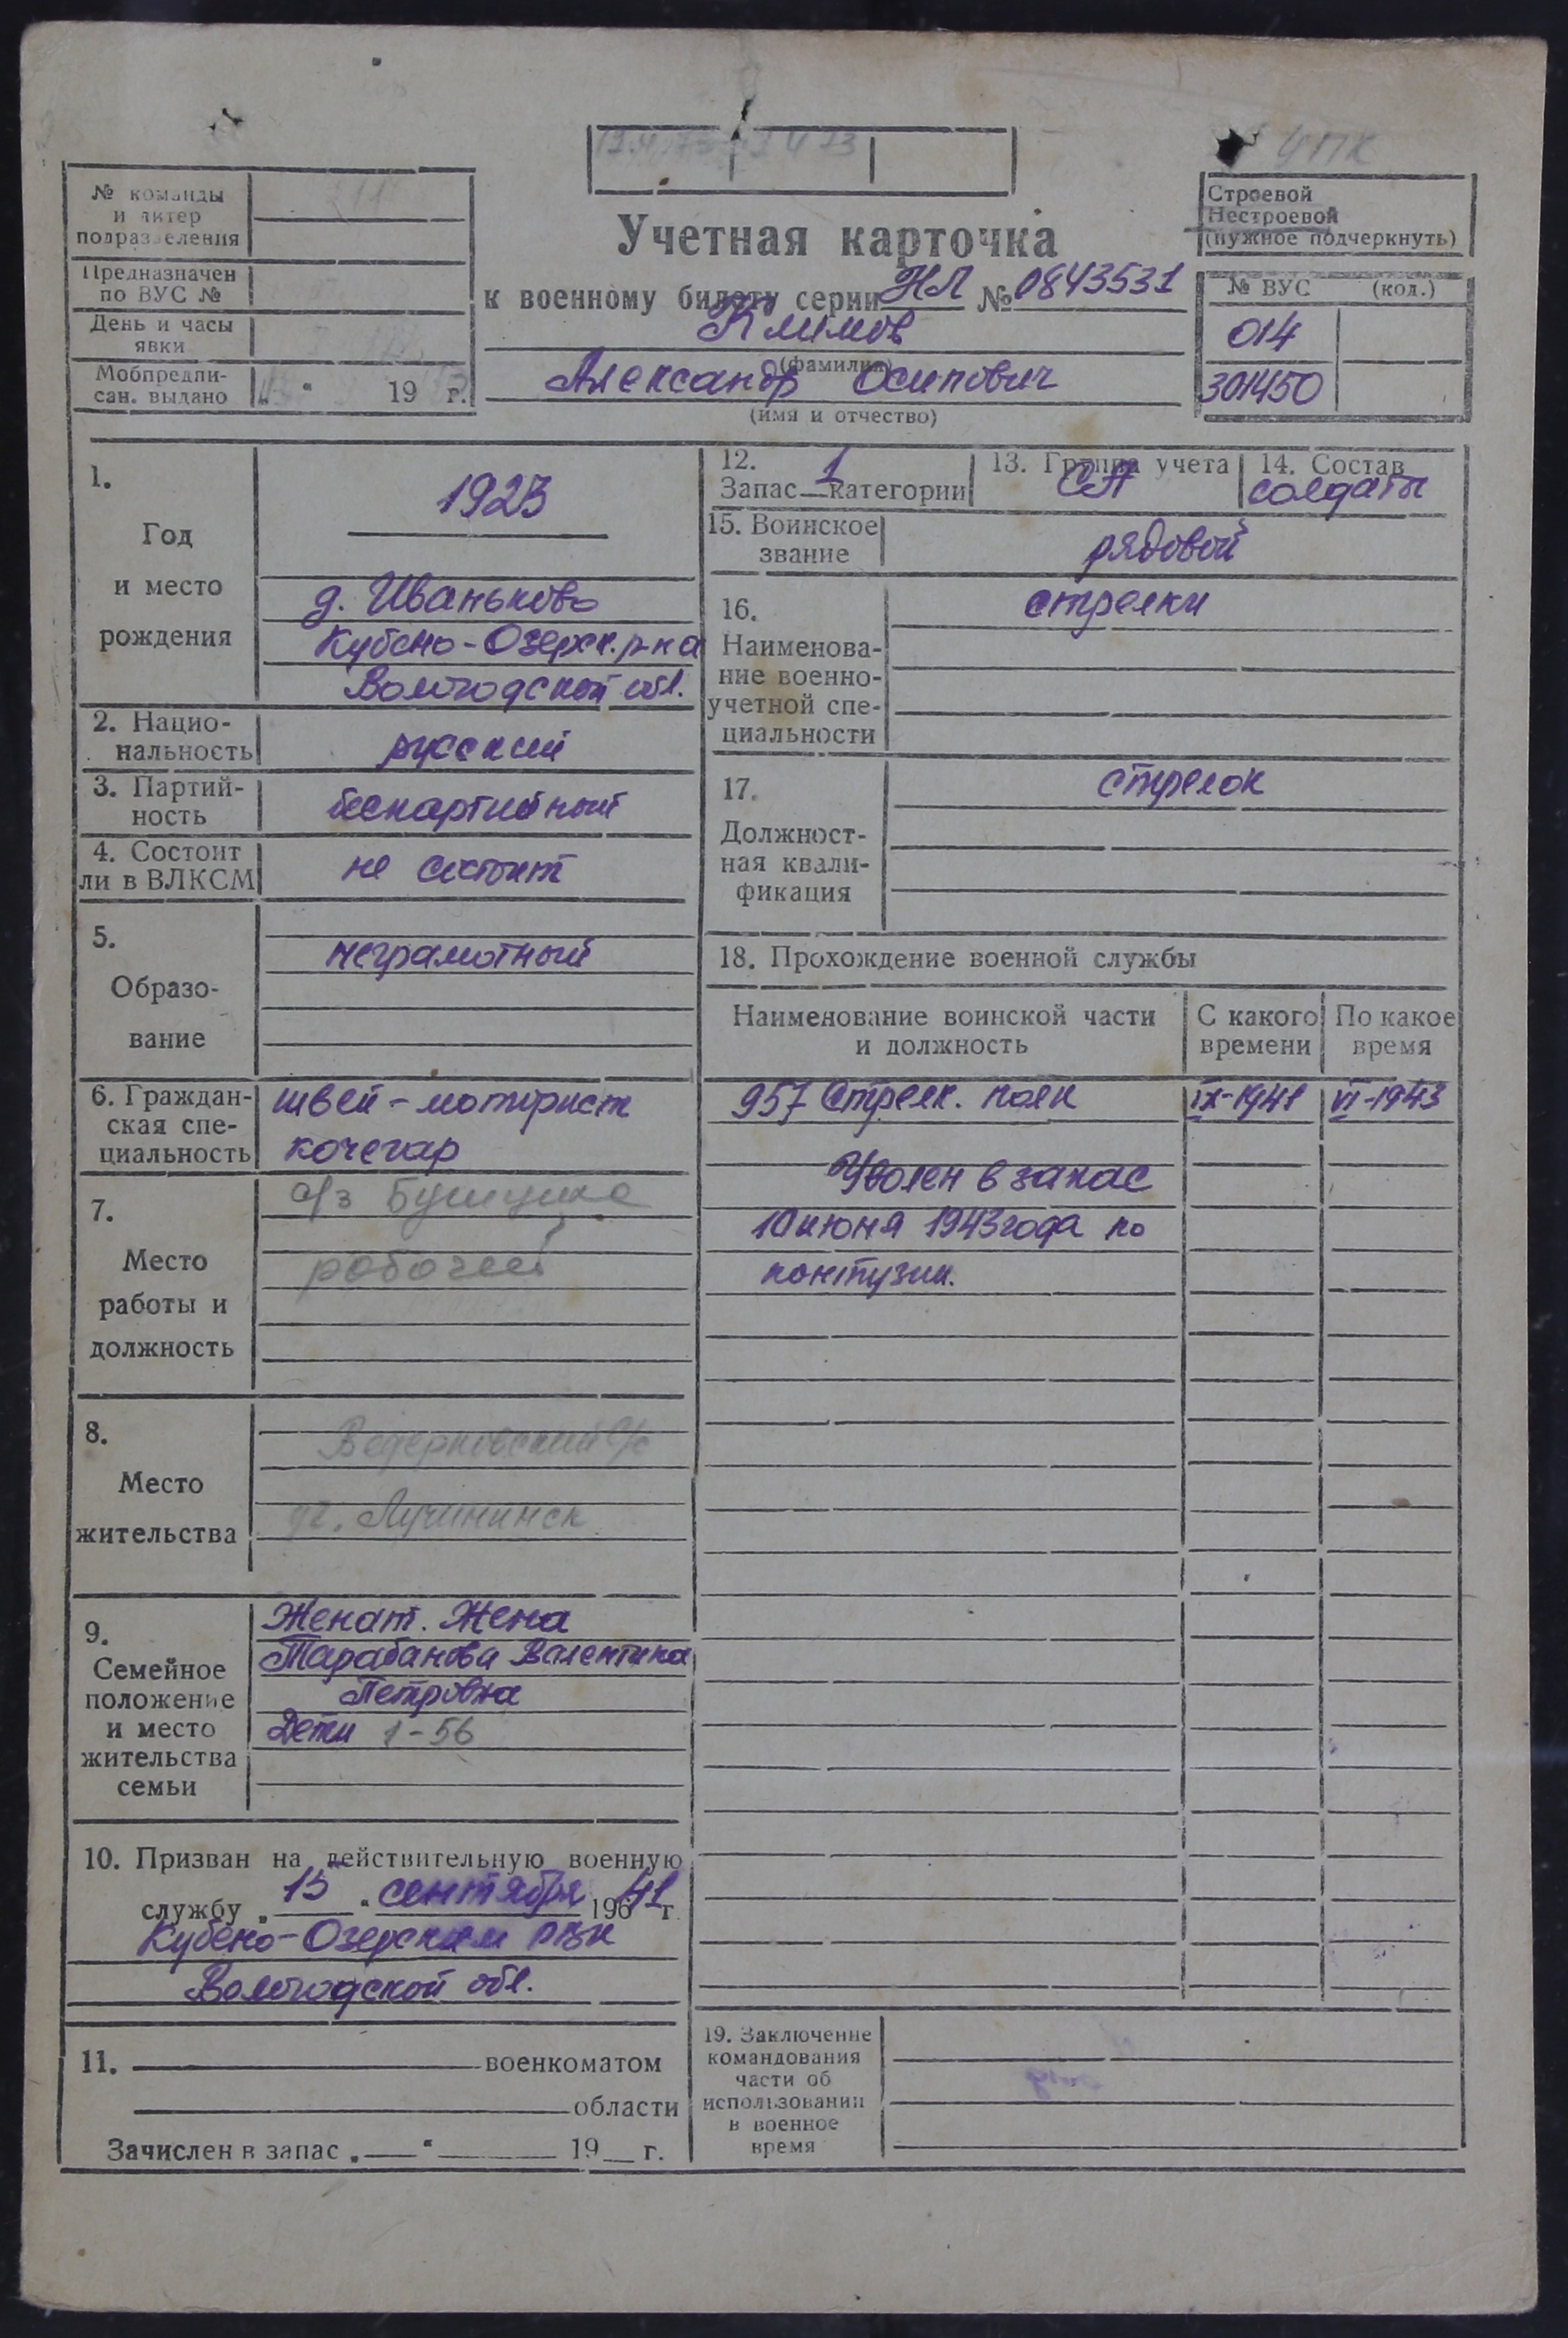 УПК
№ команды
и литер
подразделения
Предназначен
по ВУС №
День и часы
явки
Мобпредпи-
сан. выдано „ “ 19 г.
Учетная карточка
к военному билету серии НЛ № 0843531
Климов
(фамилия)
Александр Осипович
(имя и отчество)
Строевой
Нестроевой
(нужное подчеркнуть)
№ ВУС (код.)
014
301450
1.
Год
и место
рождения
1923
д. Иваньково
Кубено-Озерск. р-на
Вологодской обл.
2. Нацио-
нальность
русский
3. Партий-
ность
беспартийный
4. Состоит
ли в ВЛКСМ
не состоит
5.
Образо-
вание
неграмотный
6. Граждан-
ская спе-
циальность
швей-моторист
кочегар
7.
Место
работы и
должность
рабочий
8.
Место
жительства
9.
Семейное
положение
и место
жительства
семьи
Женат. Жена
Тарабанова Валентина
Петровна
Дети 1-56
10. Призван на действительную военную
службу „ 15 “ сентября 196 41 г.
Кубено-Озерским РВК
Вологодской обл.
11. военкоматом
области
Зачислен в запас „ “ 19 г.
12.
Запас 1 категории
13. Группа учета
СА
14. Состав
солдаты
15. Воинское
звание
рядовой
16.
Наименова-
ние военно-
учетной спе-
циальности
стрелки
17.
Должност-
ная квали-
фикация
стрелок
18. Прохождение военной службы
Наименование воинской части
и должность
С какого
времени
По какое
время
957 Стрелк. полк IX-1941 VI-1943
Уволен в запас
10 июня 1943 года по
контузии.
19. Заключение
командования
части об
использовании
в военное
время